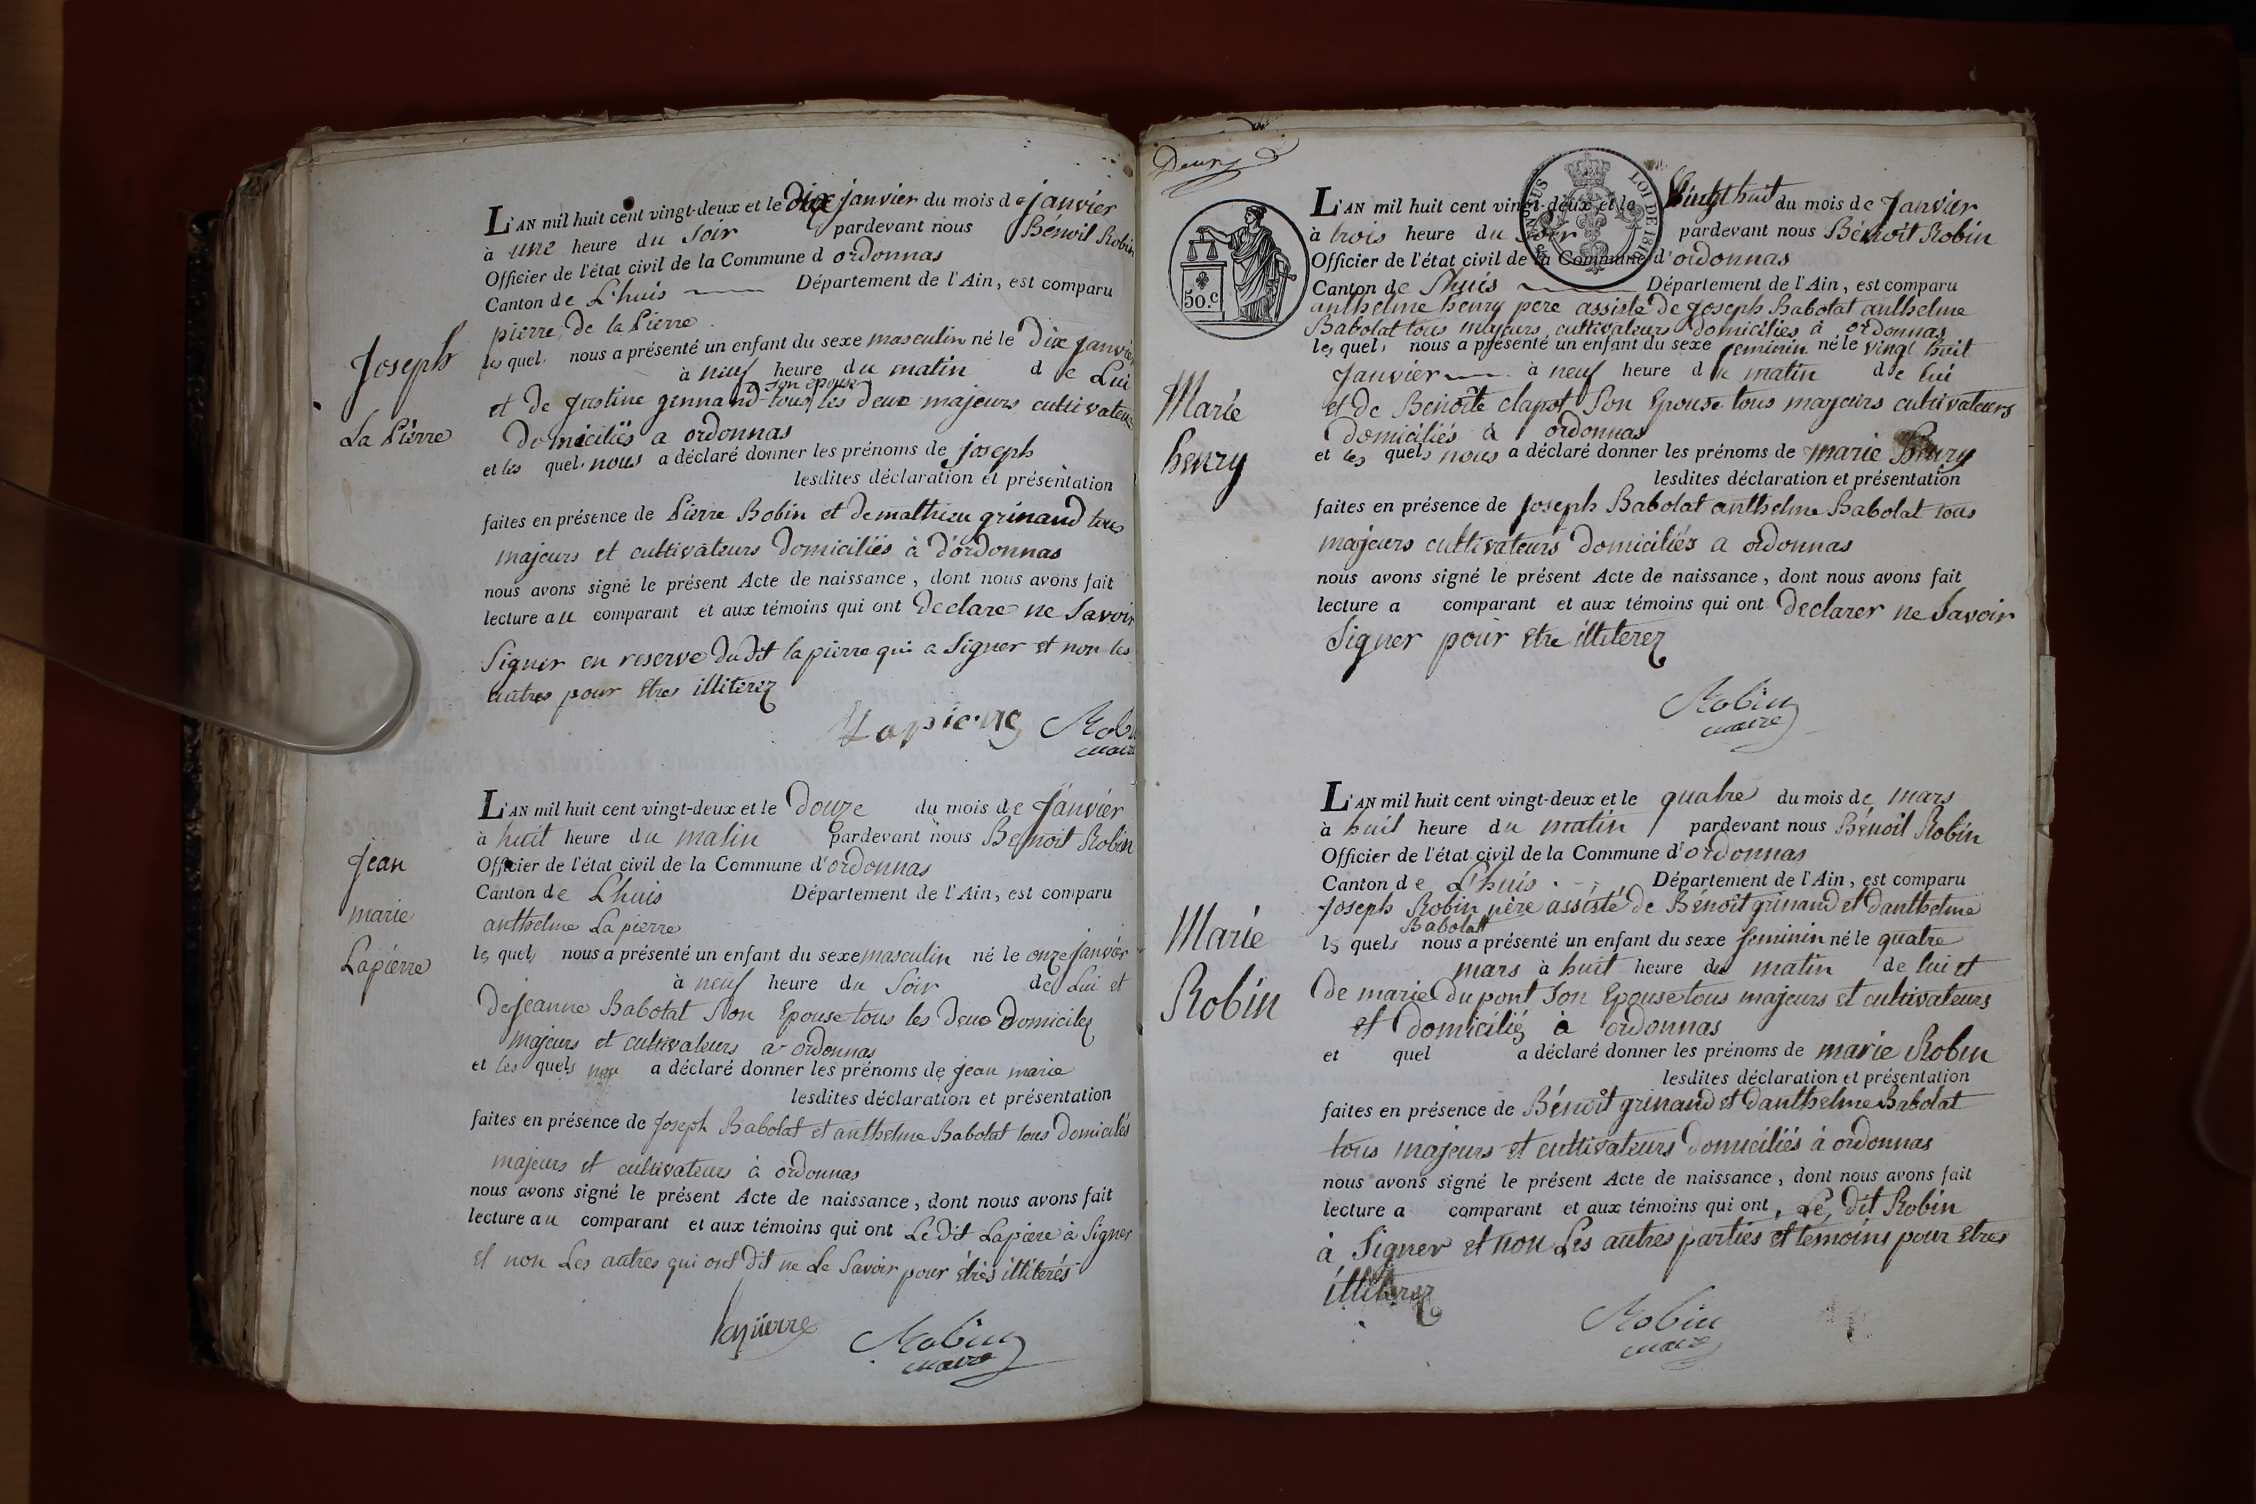 Joseph
La Pierre
L'AN mil huit cent vingt-deux et le dix janvier du mois de janvier
à une heure du Soir pardevant nous Bénoit Robin
Officier de l'état civil de la Commune d ordonnas
Canton de L'huis Département de l'Ain, est comparu
pierre de la Pierre
les quel nous a présenté un enfant du sexe masculin né le Dix janvier
à neuf heure du matin de Lui
son epouse
et de Justine gennand tous les deux majeurs cultivateurs
Domiciliés a ordonnas
et les quel nous a déclaré donner les prénoms de joseph
lesdites déclaration et présentation
faites en présence de Pierre Robin et de mathieu grinand tous
majeurs et cultivateurs Domiciliés à d'ordonnas
nous avons signé le présent Acte de naissance, dont nous avons fait
lecture au comparant et aux témoins qui ont Declare ne Savoir
Signer en reserve du dit la pierre qui a Signer et non les
autres pour Etres illiterez
Lapierre Robin
maire
jean
marie
Lapiérre
L'AN mil huit cent vingt-deux et le Douze du mois de Janvier
à huit heure du matin pardevant nous Benoit Robin
Officier de l'état civil de la Commune d'ordonnas
Canton de Lhuis Département de l'Ain, est comparu
anthelme La pierre
les quel nous a présenté un enfant du sexe masculin né le onze janvier
à neuf heure du Soir de Lui et
De jeanne Babolat Son Epouse tous les Deux Domiciles
majeurs et cultivateurs a ordonnas
et les quels nou a déclaré donner les prénoms de jean marie
lesdites déclaration et présentation
faites en présence de joseph Babolat et anthelme Babolat tous Domiciles
majeurs et cultivateurs à ordonnas
nous avons signé le présent Acte de naissance, dont nous avons fait
lecture au comparant et aux témoins qui ont Le dit Lapiere à Signer
et non Les autres qui ont Dit ne Le Savoir pour étrès illiterés
lapierre Robin
maire
Deux
50.c
LOI DE 1816
Marie
henry
L'AN mil huit cent vingt-deux et le Vingt huit du mois de Janvier
à trois heure du Soir pardevant nous Bénoit Robin
Officier de l'état civil de la Commune d'ordonnas
Canton de Lhuis Département de l'Ain, est comparu
anthelme henry pere assisté de Joseph Babolat anthelme
Babolat tous majeurs cultivateurs domiciliés à ordonnas
les quel nous a présenté un enfant du sexe feminin né le vingt huit
Janvier à neuf heure du matin de lui
et de Benoîte clapot Son Epouse tous majeurs cultivateurs
domiciliés à ordonnas
et les quels nous a déclaré donner les prénoms de marie henry
lesdites déclaration et présentation
faites en présence de Joseph Babolat anthelme Babolat tous
majeurs cultivateurs domiciliés a ordonnas
nous avons signé le présent Acte de naissance, dont nous avons fait
lecture a comparant et aux témoins qui ont Declarer ne Savoir
Signer pour etre illiterez
Robin
maire
Marie
Robin
L'AN mil huit cent vingt-deux et le quatre du mois de mars
à huit heure du matin pardevant nous Bénoit Robin
Officier de l'état civil de la Commune d'ordonnas
Canton de L'huis Département de l'Ain, est comparu
Joseph Robin père assisté de Bénoit grinand et d'anthelme
Babolat
les quels nous a présenté un enfant du sexe feminin né le quatre
mars à huit heure du matin de lui et
De marie Du pont Son Epouse tous majeurs et cultivateurs
et domiciliés à ordonnas
et quel a déclaré donner les prénoms de marie Robin
lesdites déclaration et présentation
faites en présence de Bénoit grinand et d'anthelme Babolat
tous majeurs et cultivateurs Domiciliés à ordonnas
nous avons signé le présent Acte de naissance, dont nous avons fait
lecture a comparant et aux témoins qui ont, Le dit Robin
à Signer et non Les autres parties et témoins pour Etres
illiterez
Robin
maire